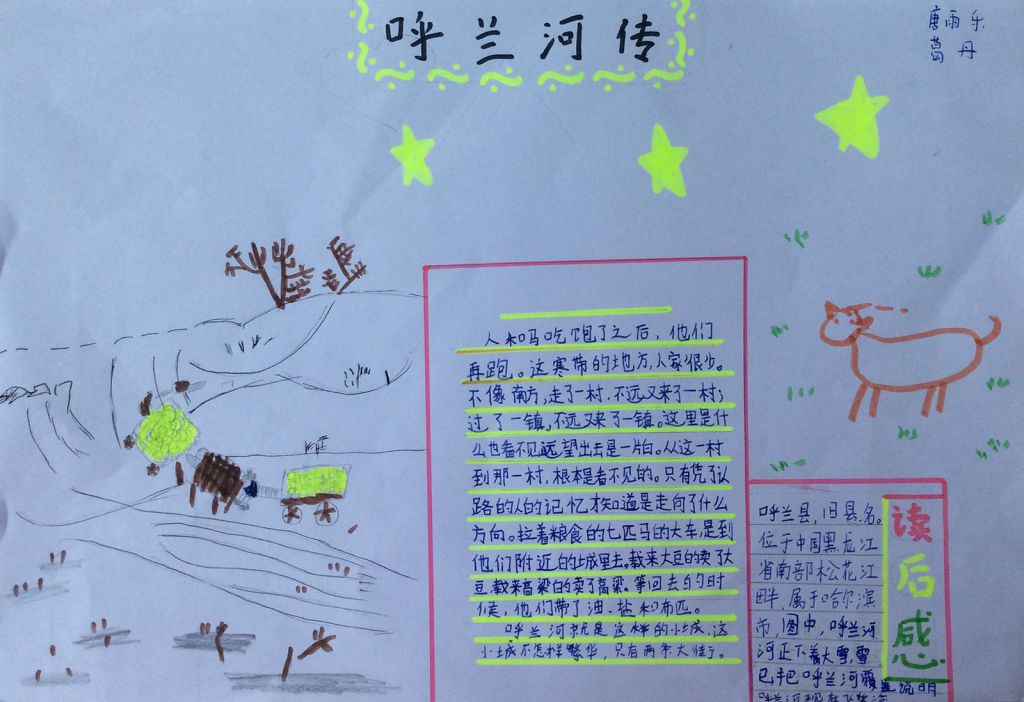 呼兰河传
唐雨乐
葛丹
人和马吃饱了之后，他们
再跑。这寒带的地方，人家很少。
不像南方，走了一村，不远又来了一村；
过了一镇，不远又来了一镇。这里是什
么也看不见，远望出去是一片白。从这一村
到那一村，根本是看不见的。只有凭了认
路的人的记忆才知道是走向了什么
方向。拉着粮食的七匹马的大车，是到
他们附近的城里去。载来大豆的卖了大
豆，载来高粱的卖了高粱。等回去的时
候，他们带了油、盐和布匹。
呼兰河就是这样的小城，这
小城不怎样繁华，只有两条大街。
读后感
呼兰县，旧县名。
位于中国黑龙江
省南部松花江
畔，属于哈尔滨
市，图中，呼兰河
河正下着大雪，雪
已把呼兰河覆盖
说明